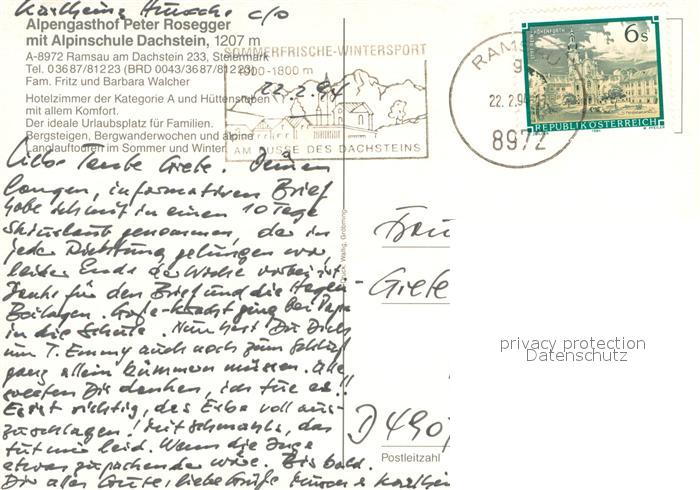 Karlheinz c/o
Alpengasthof Peter Rosegger
mit Alpinschule Dachstein, 1207 m
A-8972 Ramsau am Dachstein 233, Steiermark
Tel. 03687/81223 (BRD 0043/3687/81223)
Fam. Fritz und Barbara Walcher
Hotelzimmer der Kategorie A und Hüttenstuben
mit allem Komfort.
Der ideale Urlaubsplatz für Familien.
Bergsteigen, Bergwanderwochen und alpine
Langlauftouren im Sommer und Winter.
SOMMERFRISCHE-WINTERSPORT
1000-1800 m
22.2.94
AM FUSSE DES DACHSTEINS
RAMSAU
22.2.94
8972
6s
REPUBLIK ÖSTERREICH
Liebe Tante Grete. Deinen
langen, informativen Brief
habe ich mit in einen 10 Tage
Skiurlaub genommen, der in
jeder Richtung gelungen war,
leider Ende der Woche vorbei ist.
Danke für den Brief und die
Beilagen. ging bei Papa
in die Schule. Nun hast Du Dich
um T. Emmy auch noch zum Schluß
ganz allein kümmern müssen. Alle
sollten Dir danken, ich tue es!!
Es ist richtig, das Erbe voll aus-
zuschlagen!
tut mir leid. Wenn die
etwas zupackender wäre. Bis bald.
Dir alles Gute, liebe Grüße & Karlhein
Frau
Grete
D 490
Postleitzahl
privacy protection
Datenschutz